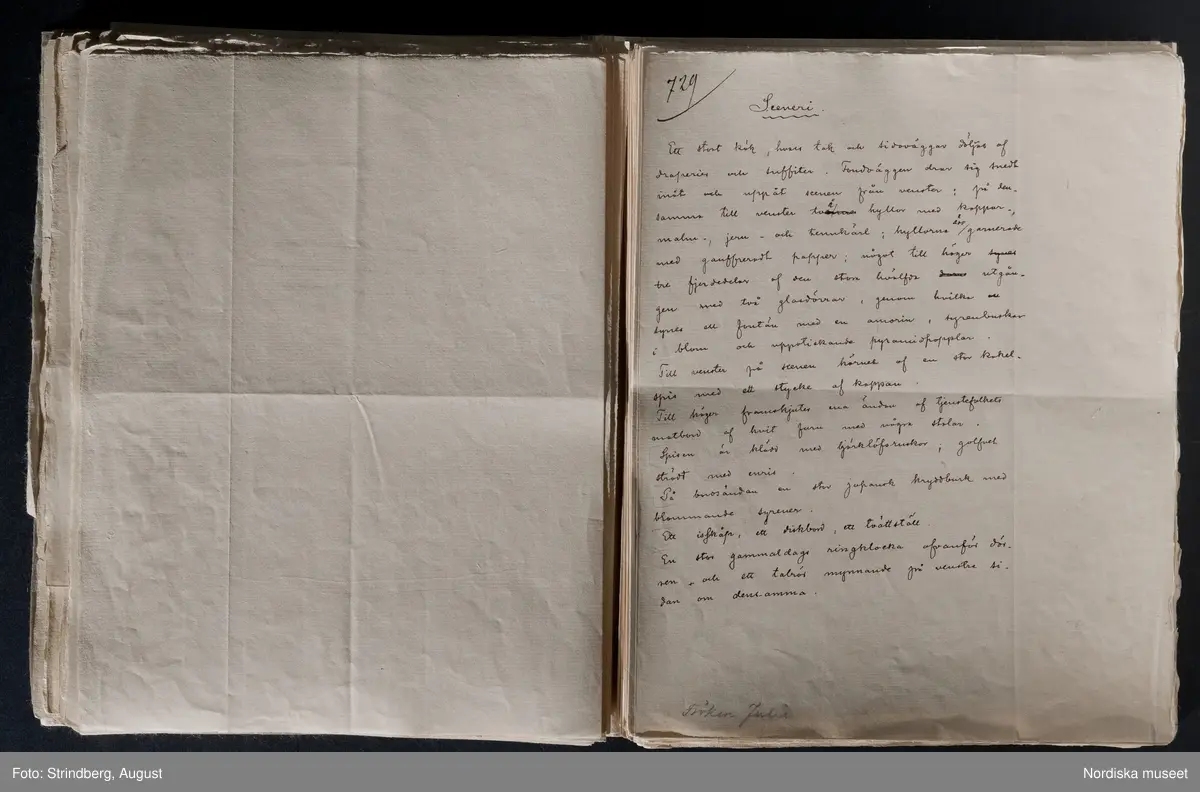 729
Sceneri.
Ett stort kök, hvars tak och sidoväggar döljas af
draperier och suffiter. Fondväggen drar sig snedt
inåt och uppåt scenen från venster; på den-
samma till venster två hyllor med koppar-,
malm-, jern- och tennkärl; hyllorna äro garnerade
med gauffreradt papper; något till höger synes
tre fjerdedelar af den stora hvälfda utgån-
gen med två glasdörrar, genom hvilka
synes ett fontän med en amorin, syrenbuskar
i blom och uppstickande pyramidpopplar.
Till venster på scenen hörnet af en stor kakel-
spis med ett stycke af kappan.
Till höger framskjutes ena ändan af tjenstefolkets
matbord af hvit furu med några stolar.
Spisen är klädd med björklöfsruskor; golfvet
strödt med enris.
På bordsändan en stor japansk kryddburk med
blommande syrener.
Ett isskåp, ett diskbord, ett tvättställ.
En stor gammaldags ringklocka ofvanför dör-
ren, och ett talrör mynnande på venstra si-
dan om densamma.
Fröken Julie
Foto: Strindberg, August
Nordiska museet